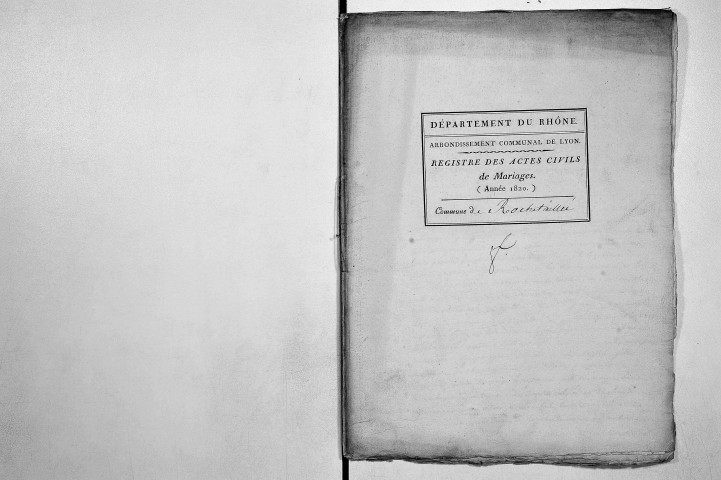 DÉPARTEMENT DU RHÔNE.
ARRONDISSEMENT COMMUNAL DE LYON.
REGISTRE DES ACTES CIVILS
de Mariages.
( Année 1820. )
Commune de Rochetaillée